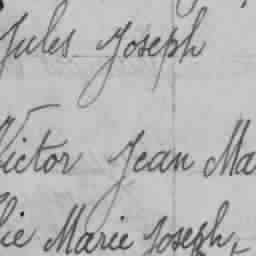 Jules Joseph
Victor Jean Ma
lie Marie Joseph,